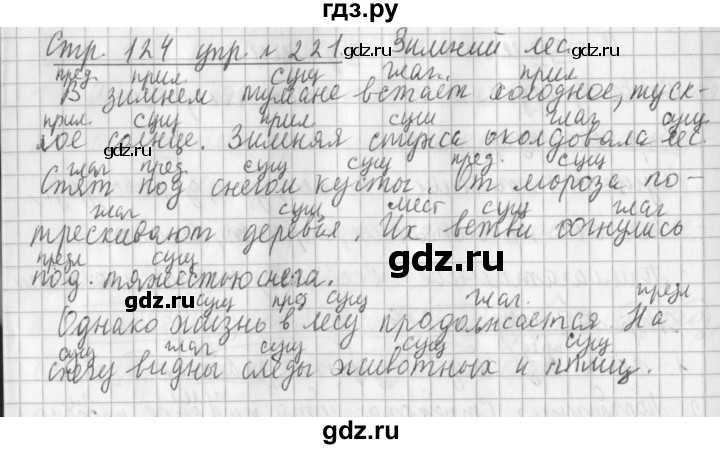 гдз.ру
Стр. 124 упр. № 221. Зимний лес.
пред. прил сущ глаг. прил
В зимнем тумане встаёт холодное, туск-
прил. сущ прил сущ глаг сущ
лое солнце. Зимняя стужа околдовала лес.
глаг пред. сущ сущ пред. сущ
Спят под снегом кусты. От мороза по-
глаг сущ мест сущ глаг
трескивают деревья. Их ветви согнулись
предл сущ
под тяжестью снега.
сущ пред сущ глаг. предл
Однако жизнь в лесу продолжается. На
сущ глаг сущ сущ сущ
снегу видны следы животных и птиц.
gdz.ru
gdz.ru
gdz.ru
gdz.ru
gdz.ru
gdz.ru
gdz.ru
gdz.ru